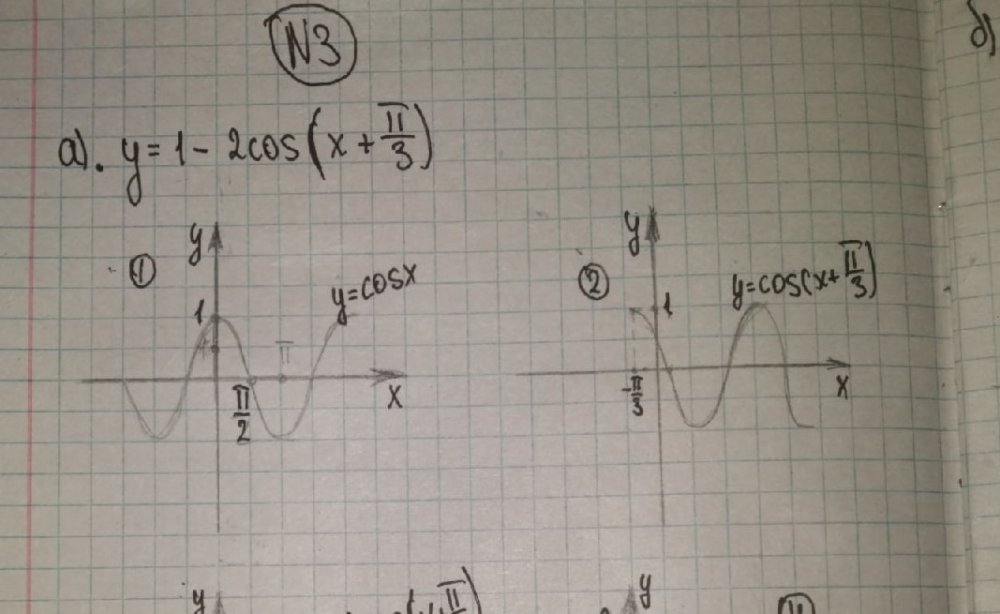 N3
а). y = 1 - 2cos(x + π/3)
①
y
1
y=cosx
π
π/2
x
②
y
1
y=cos(x+π/3)
-π/3
x
б)
y
π
y